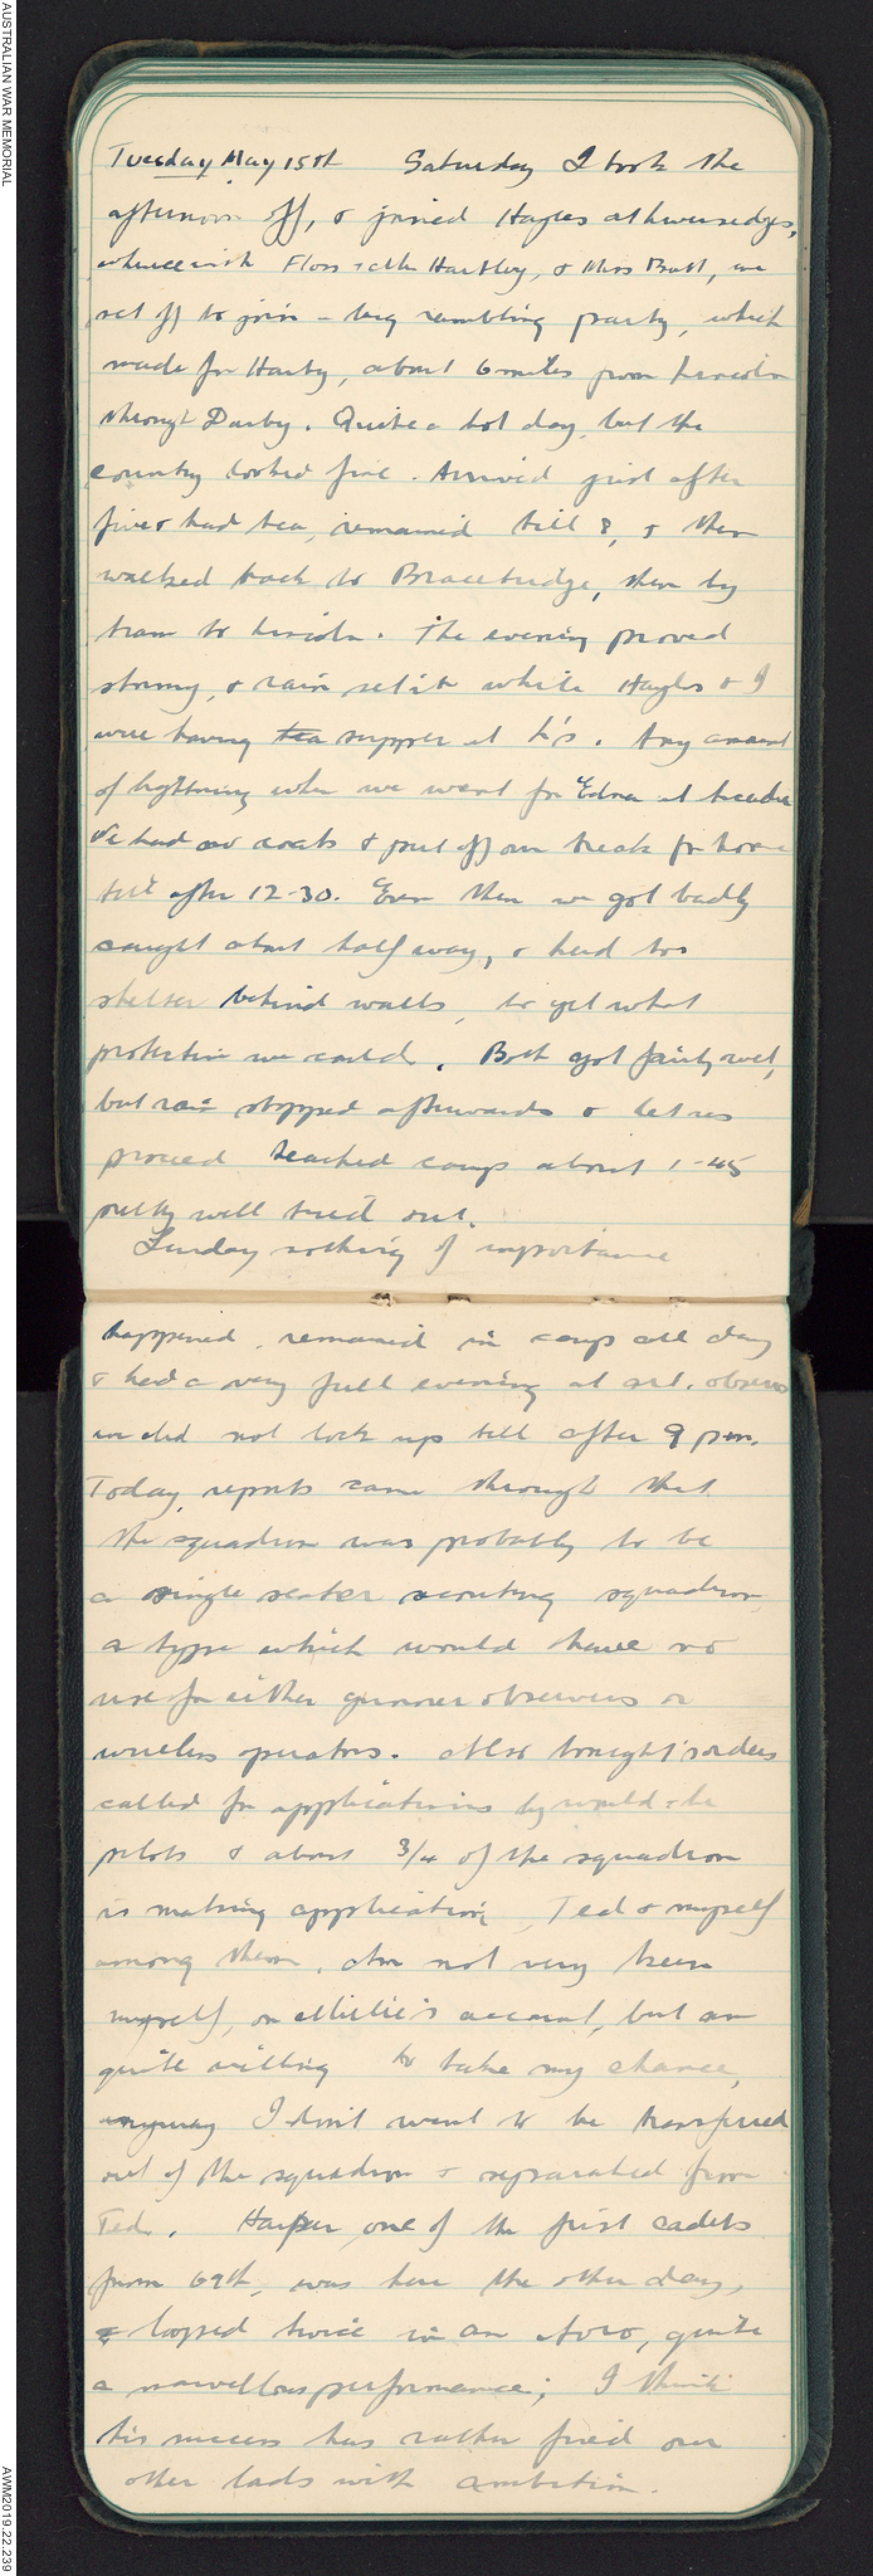 AUSTRALIAN WAR MEMORIAL
Tuesday May 15th Saturday I took the
afternoon off, & joined Hayles at
whence with Floss Hartley, & Miss Butt, we
set off to join a big rambling party, which
made for Harby, about 6 miles from Lincoln
through Quite a hot day, but the
country looked fine. Arrived just after
five & had tea, remained till 8, & then
walked back to Bracebridge, then by
tram to Lincoln. The evening proved
stormy, & rain set in while Hayles & I
were having tea supper at L's. Any amount
of lightning when we went for Edna at theatre
We had no coats & put off our break for home
till after 12-30. Even then we got badly
caught about half way, & had to
shelter behind walls, to get what
protection we could. Both got fairly wet,
but rain stopped afterwards & let us
proceed Reached camp about 1-45
pretty well tired out.
Sunday nothing of importance
happened, remained in camp all day
& had a very full evening at art. observ
we did not lock up till after 9 pm.
Today, reports came through that
the squadron was probably to be
a single seater scouting squadron,
a type which would have no
use for either gunner observers or
wireless operators. Also tonight's orders
called for applications by would-be
pilots & about 3/4 of the squadron
is making application, Ted & myself
among them. Am not very keen
myself, on Millie's account, but am
quite willing to take my chance,
anyway I don't want to be transferred
out of the squadron & separated from
Ted. Harper, one of the first cadets
from 69th, was here the other day,
& looped twice in an Avro, quite
a marvellous performance; I think
his success has rather fired our
other lads with ambition.
AWM2019.22.239